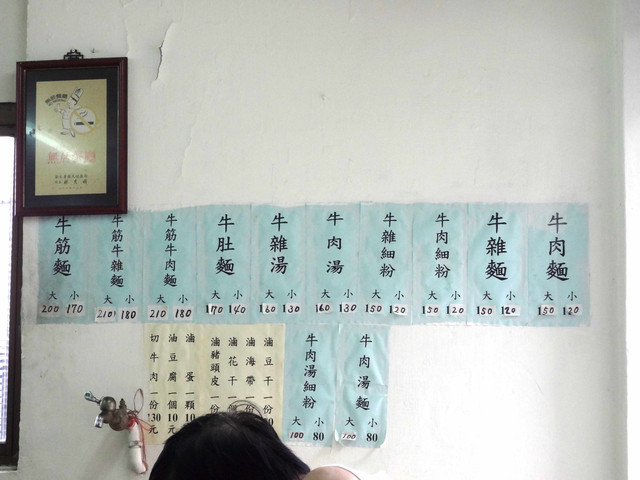 牛肉麵
大 小
150 120
牛雜麵
大 小
150 120
牛肉細粉
大 小
150 120
牛雜細粉
大 小
150 120
牛肉湯
大 小
160 130
牛雜湯
大 小
160 130
牛肚麵
大 小
170 140
牛筋牛肉麵
大 小
210 180
牛筋牛雜麵
大 小
210 180
牛筋麵
大 小
200 170
牛肉湯麵
大 小
100 80
牛肉湯細粉
大 小
100 80
滷豆干一份
滷海帶一份
滷花干一個
滷豬頭皮一份
滷蛋一顆10
油豆腐一個10元
切牛肉一份130元